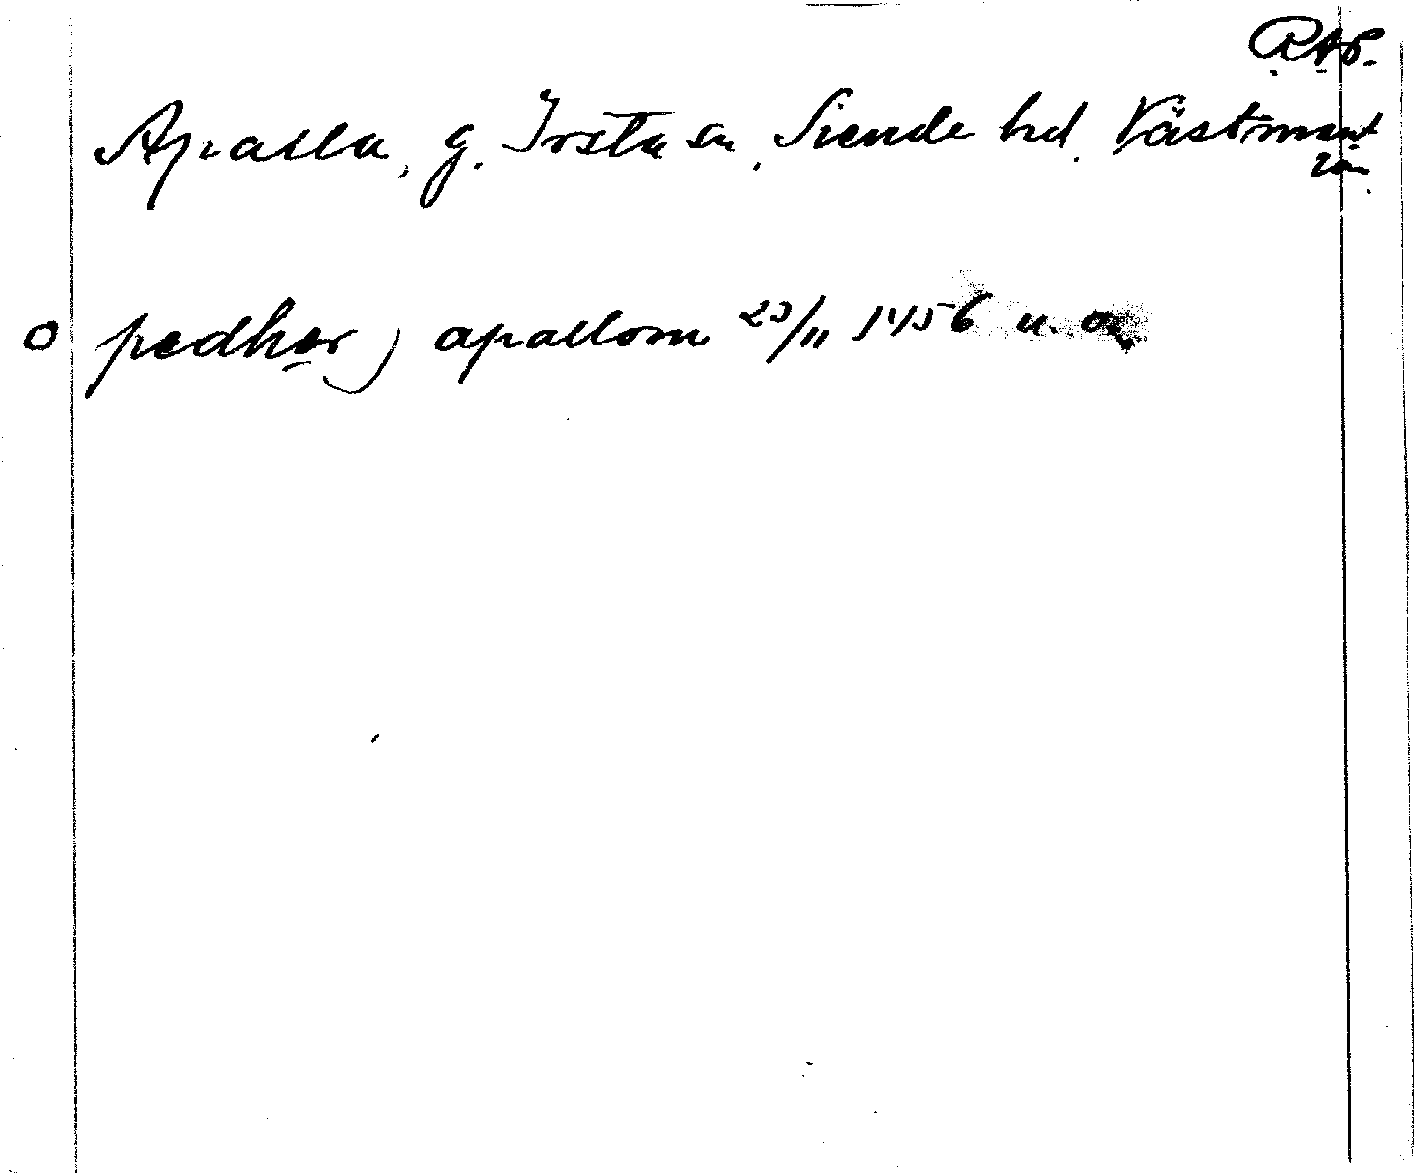 RAP.
Apalla, g. Irsta sn, Siende hd. Västmanl
län.
o pedhær j apallom 23/11 1456 u. a.